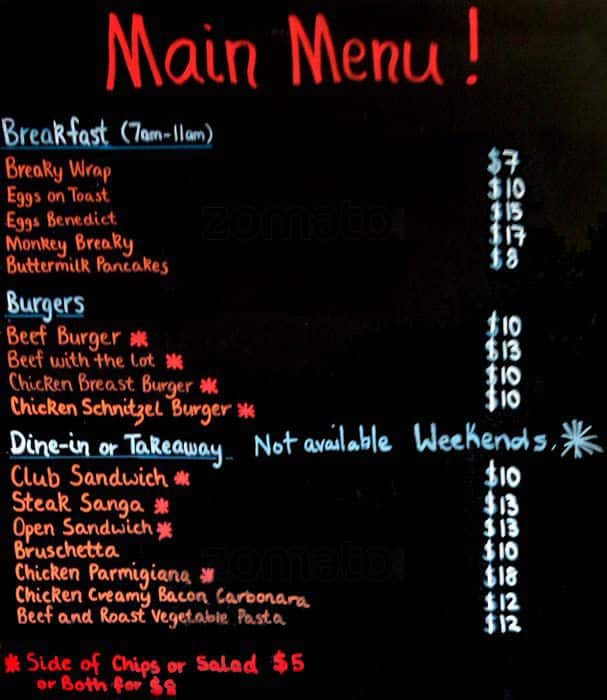 Main Menu!
Breakfast (7am-11am)
Breaky Wrap $7
Eggs on Toast $10
Eggs Benedict $15
Monkey Breaky $17
Buttermilk Pancakes $8
Burgers
Beef Burger * $10
Beef with the Lot * $13
Chicken Breast Burger * $10
Chicken Schnitzel Burger * $10
Dine-in or Takeaway Not available Weekends. *
Club Sandwich * $10
Steak Sanga * $13
Open Sandwich * $13
Bruschetta $10
Chicken Parmigiana * $18
Chicken Creamy Bacon Carbonara $12
Beef and Roast Vegetable Pasta $12
* Side of Chips or Salad $5
or Both for $8
zomato
zomato